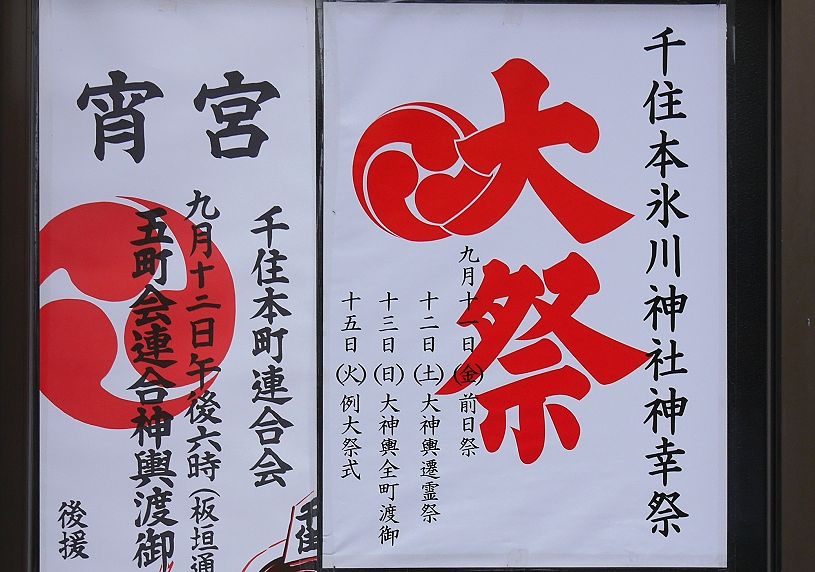 千住本氷川神社神幸祭
大祭
九月十一日(金)前日祭
十二日(土)大神輿遷霊祭
十三日(日)大神輿全町渡御
十五日(火)例大祭式
宵宮
千住本町連合会
九月十二日午後六時(板垣通
五町会連合神輿渡御
後援
千住